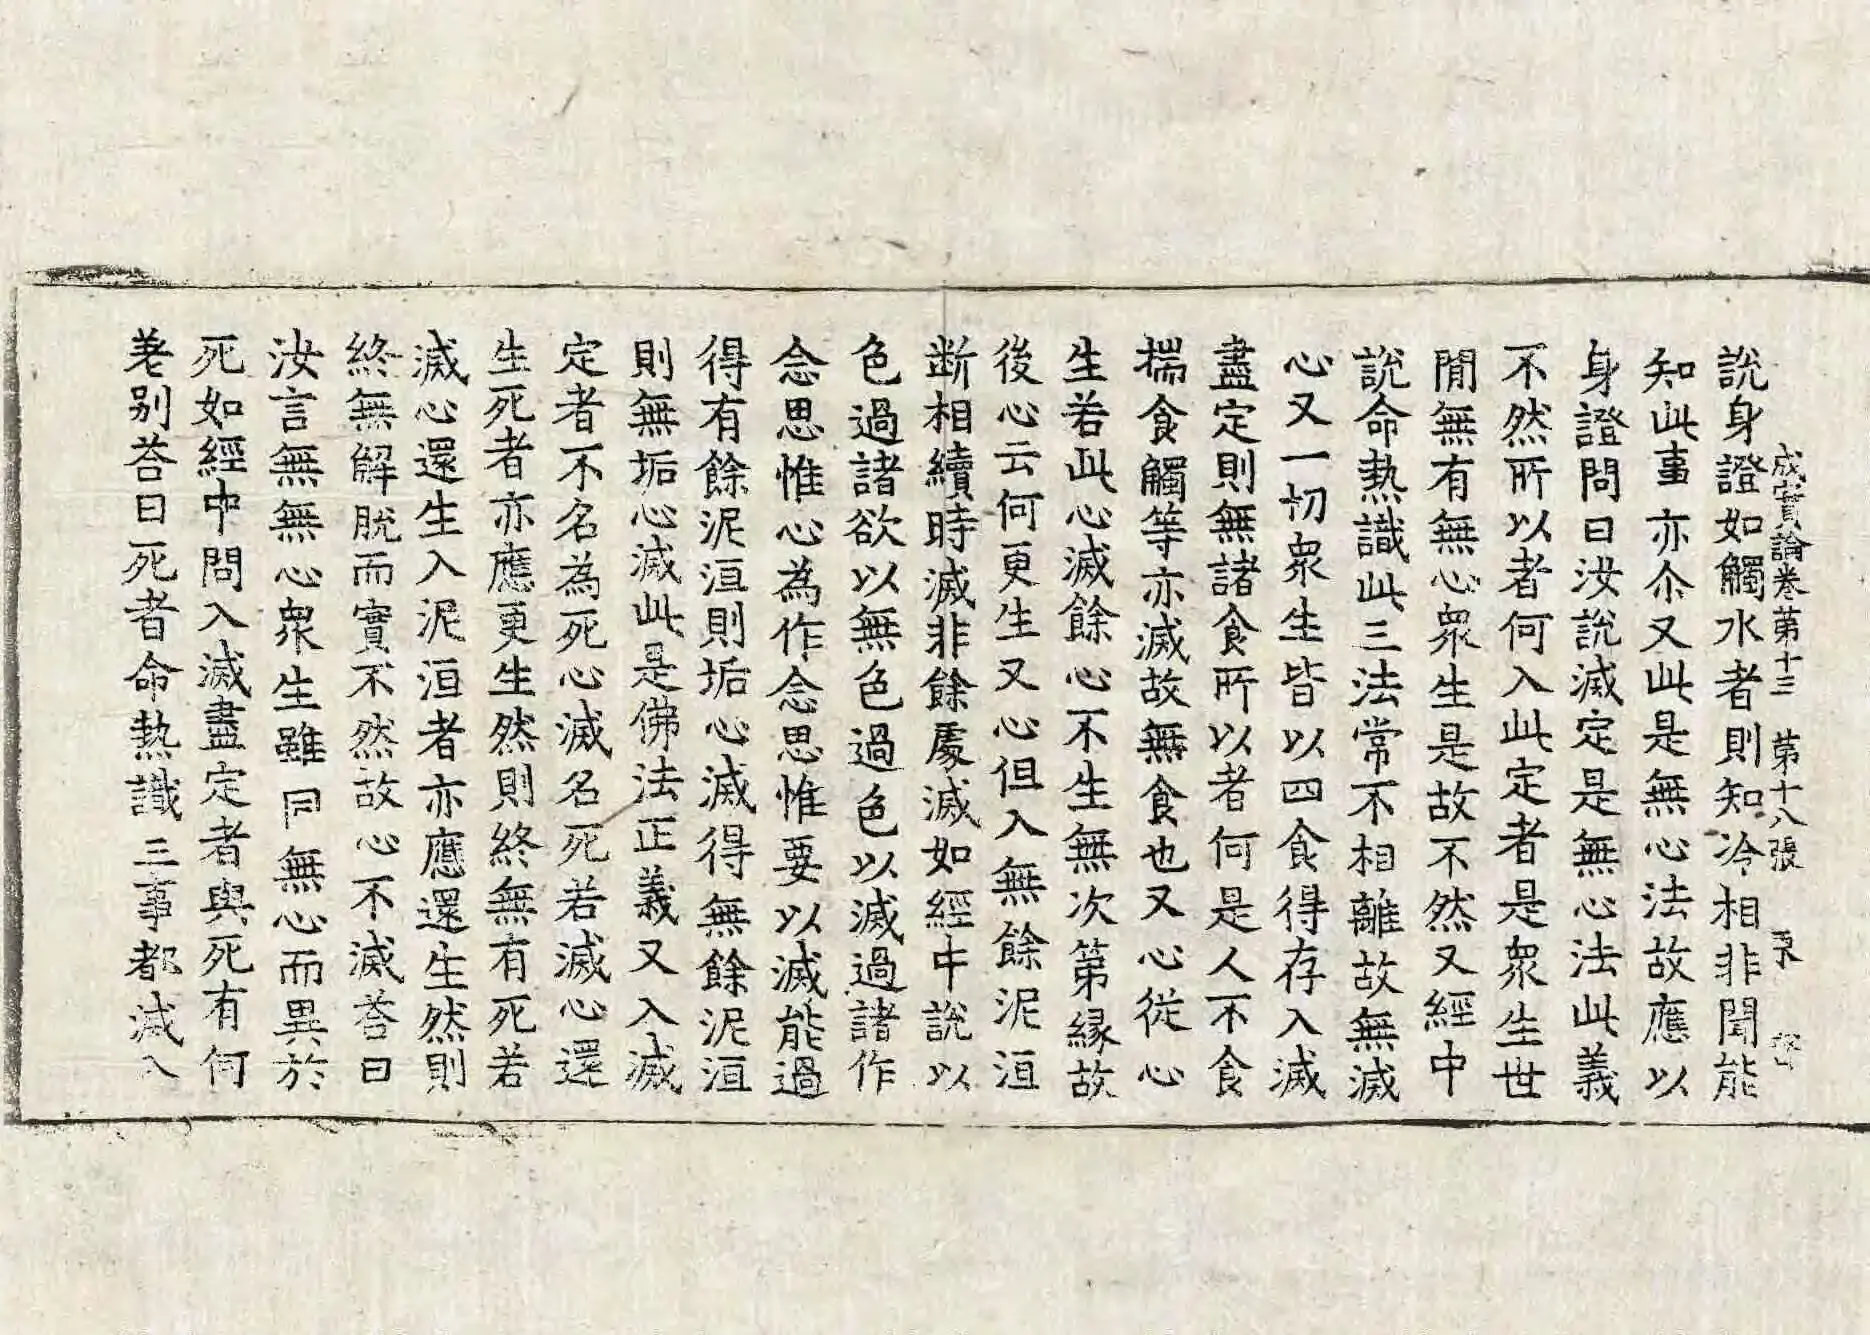 成實論卷第十三　第十八張
說身證如觸水者則知冷相非聞能
知此事亦尒又此是無心法故應以
身證問曰汝說滅定是無心法此義
不然所以者何入此定者是衆生世
閒無有無心衆生是故不然又經中
說命熱識此三法常不相離故無滅
心又一切衆生皆以四食得存入滅
盡定則無諸食所以者何是人不食
揣食觸等亦滅故無食也又心從心
生若此心滅餘心不生無次第縁故
後心云何更生又心但入無餘泥洹
断相續時滅非餘處滅如經中說以
色過諸欲以無色過色以滅過諸作
念思惟心為作念思惟要以滅能過
得有餘泥洹則垢心滅得無餘泥洹
則無垢心滅此是佛法正義又入滅
定者不名為死心滅名死若滅心還
生死者亦應更生然則終無有死若
滅心還生入泥洹者亦應還生然則
終無解脫而實不然故心不滅荅曰
汝言無無心衆生雖同無心而異於
死如經中問入滅盡定者與死有何
差别荅曰死者命熱識三事都滅入